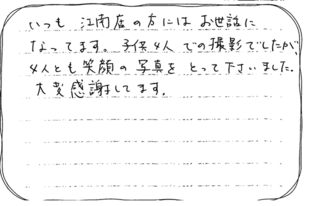 いつも 江南店の方には お世話に
なってます。子供4人 での撮影でしたが、
4人とも笑顔の写真を とって下さいました。
大変感謝してます。